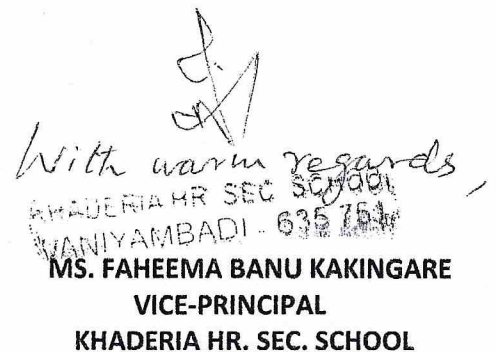 With warm regards,
KHADERIA HR SEC SCHOOL
VANIYAMBADI - 635 751
MS. FAHEEMA BANU KAKINGARE
VICE-PRINCIPAL
KHADERIA HR. SEC. SCHOOL